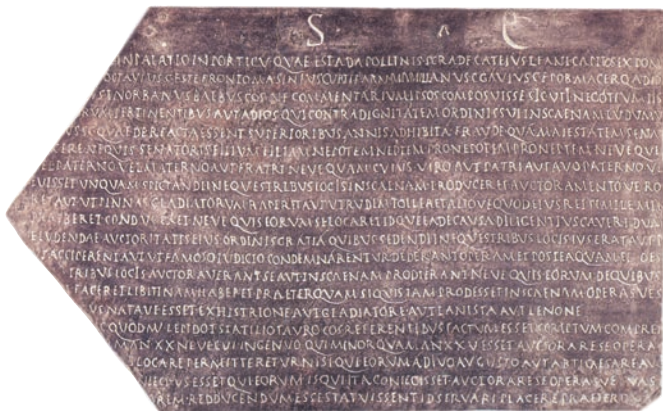 S C
IN PALATIO IN PORTICV QVAE EST AD APOLLINIS SCR ADF C ATEIVS L F ANI CAPITO SEX POM
OCTAVIVS C F STE FRONTO M ASINIVS CVRTI F ARN MAMILIANVS C GAVIVS C F POB MACER Q A DIDI
NORBANVS BALBVS COS COMMENTARIVM IPSOS COMPOSVISSE SICVTI NEGOTIVM IIS
PERTINENTIBVS AVT AD IOS QVI CONTRA DIGNITATEM ORDINIS SVI IN SCAENAM LVDVM
QVAE D E R FACTA ESSENT SVPERIORIBVS ANNIS ADHIBITA FRAVDE QVA MAIESTATEM SENA
NE QVIS SENATORIS FILIVM FILIAM NEPOTEM NEPTEM PRONEPOTEM PRONEPTEM NEVE QVE
PATERNO VEL MATERNO AVT FRATRI NEVE QVAM CVIVS VIRO AVT PATRI AVT AVO PATERNO VE
FVISSET VNQVAM SPECTANDI IN EQVESTRIBVS LOCIS IN SCAENAM PRODVCERET AVCTORAMENTOVE RO
RET AVT VT PINNAS GLADIATORVM RAPERET AVT VT RVDEM TOLLERET ALIOVE QVOD EIVS REI SIMILE MIN
ABERET CONDVCERET NEVE QVIS EORVM SE LOCARET IDQVE EA DE CAVSA DILIGENTIVS CAVERI DVA
ELVDENDAE AVCTORITATIS EIVS ORDINIS GRATIA QVIBVS SEDENDI IN EQVESTRIBVS LOCIS IVS ERAT AVT P
ACCIPERENT AVT VT FAMOSO IVDICIO CONDEMNARENTVR DEDERANT OPERAM ET POSTEA QVAM EI DES
TRIBVS LOCIS AVCTORAVERANT SE AVT IN SCAENAM PRODIERANT NEVE QVIS EORVM DE QVIBVS
FACERET LIBITINAM HABERET PRAETERQVAM SI QVIS IAM PRODISSET IN SCAENAM OPERASVE S
VE NATAVE ESSET EX HISTRIONE AVT GLADIATORE AVT LANISTA AVT LENONE
C QVOD M LEPIDO T STATILIO TAVRO COS REFERENTIBVS FACTVM ESSET SCRIPTVM COMPRE
M AN XX NEVE CVI INGENVO QVI MINOR QVAM AN XXV ESSET AVCTORARE SE OPERA
LOCARE PERMITTERETVR NISI QVI EORVM A DIVO AVGVSTO AVT AB TI CAESARE AV
IECTVS ESSET QVI EORVM IS QVI ITA CONIECISSET AVCTORARE SE OPERASVE SVAS
REM REDVCENDVM ESSE STATVISSENT ID SERVARI PLACERE PRAETERQVA